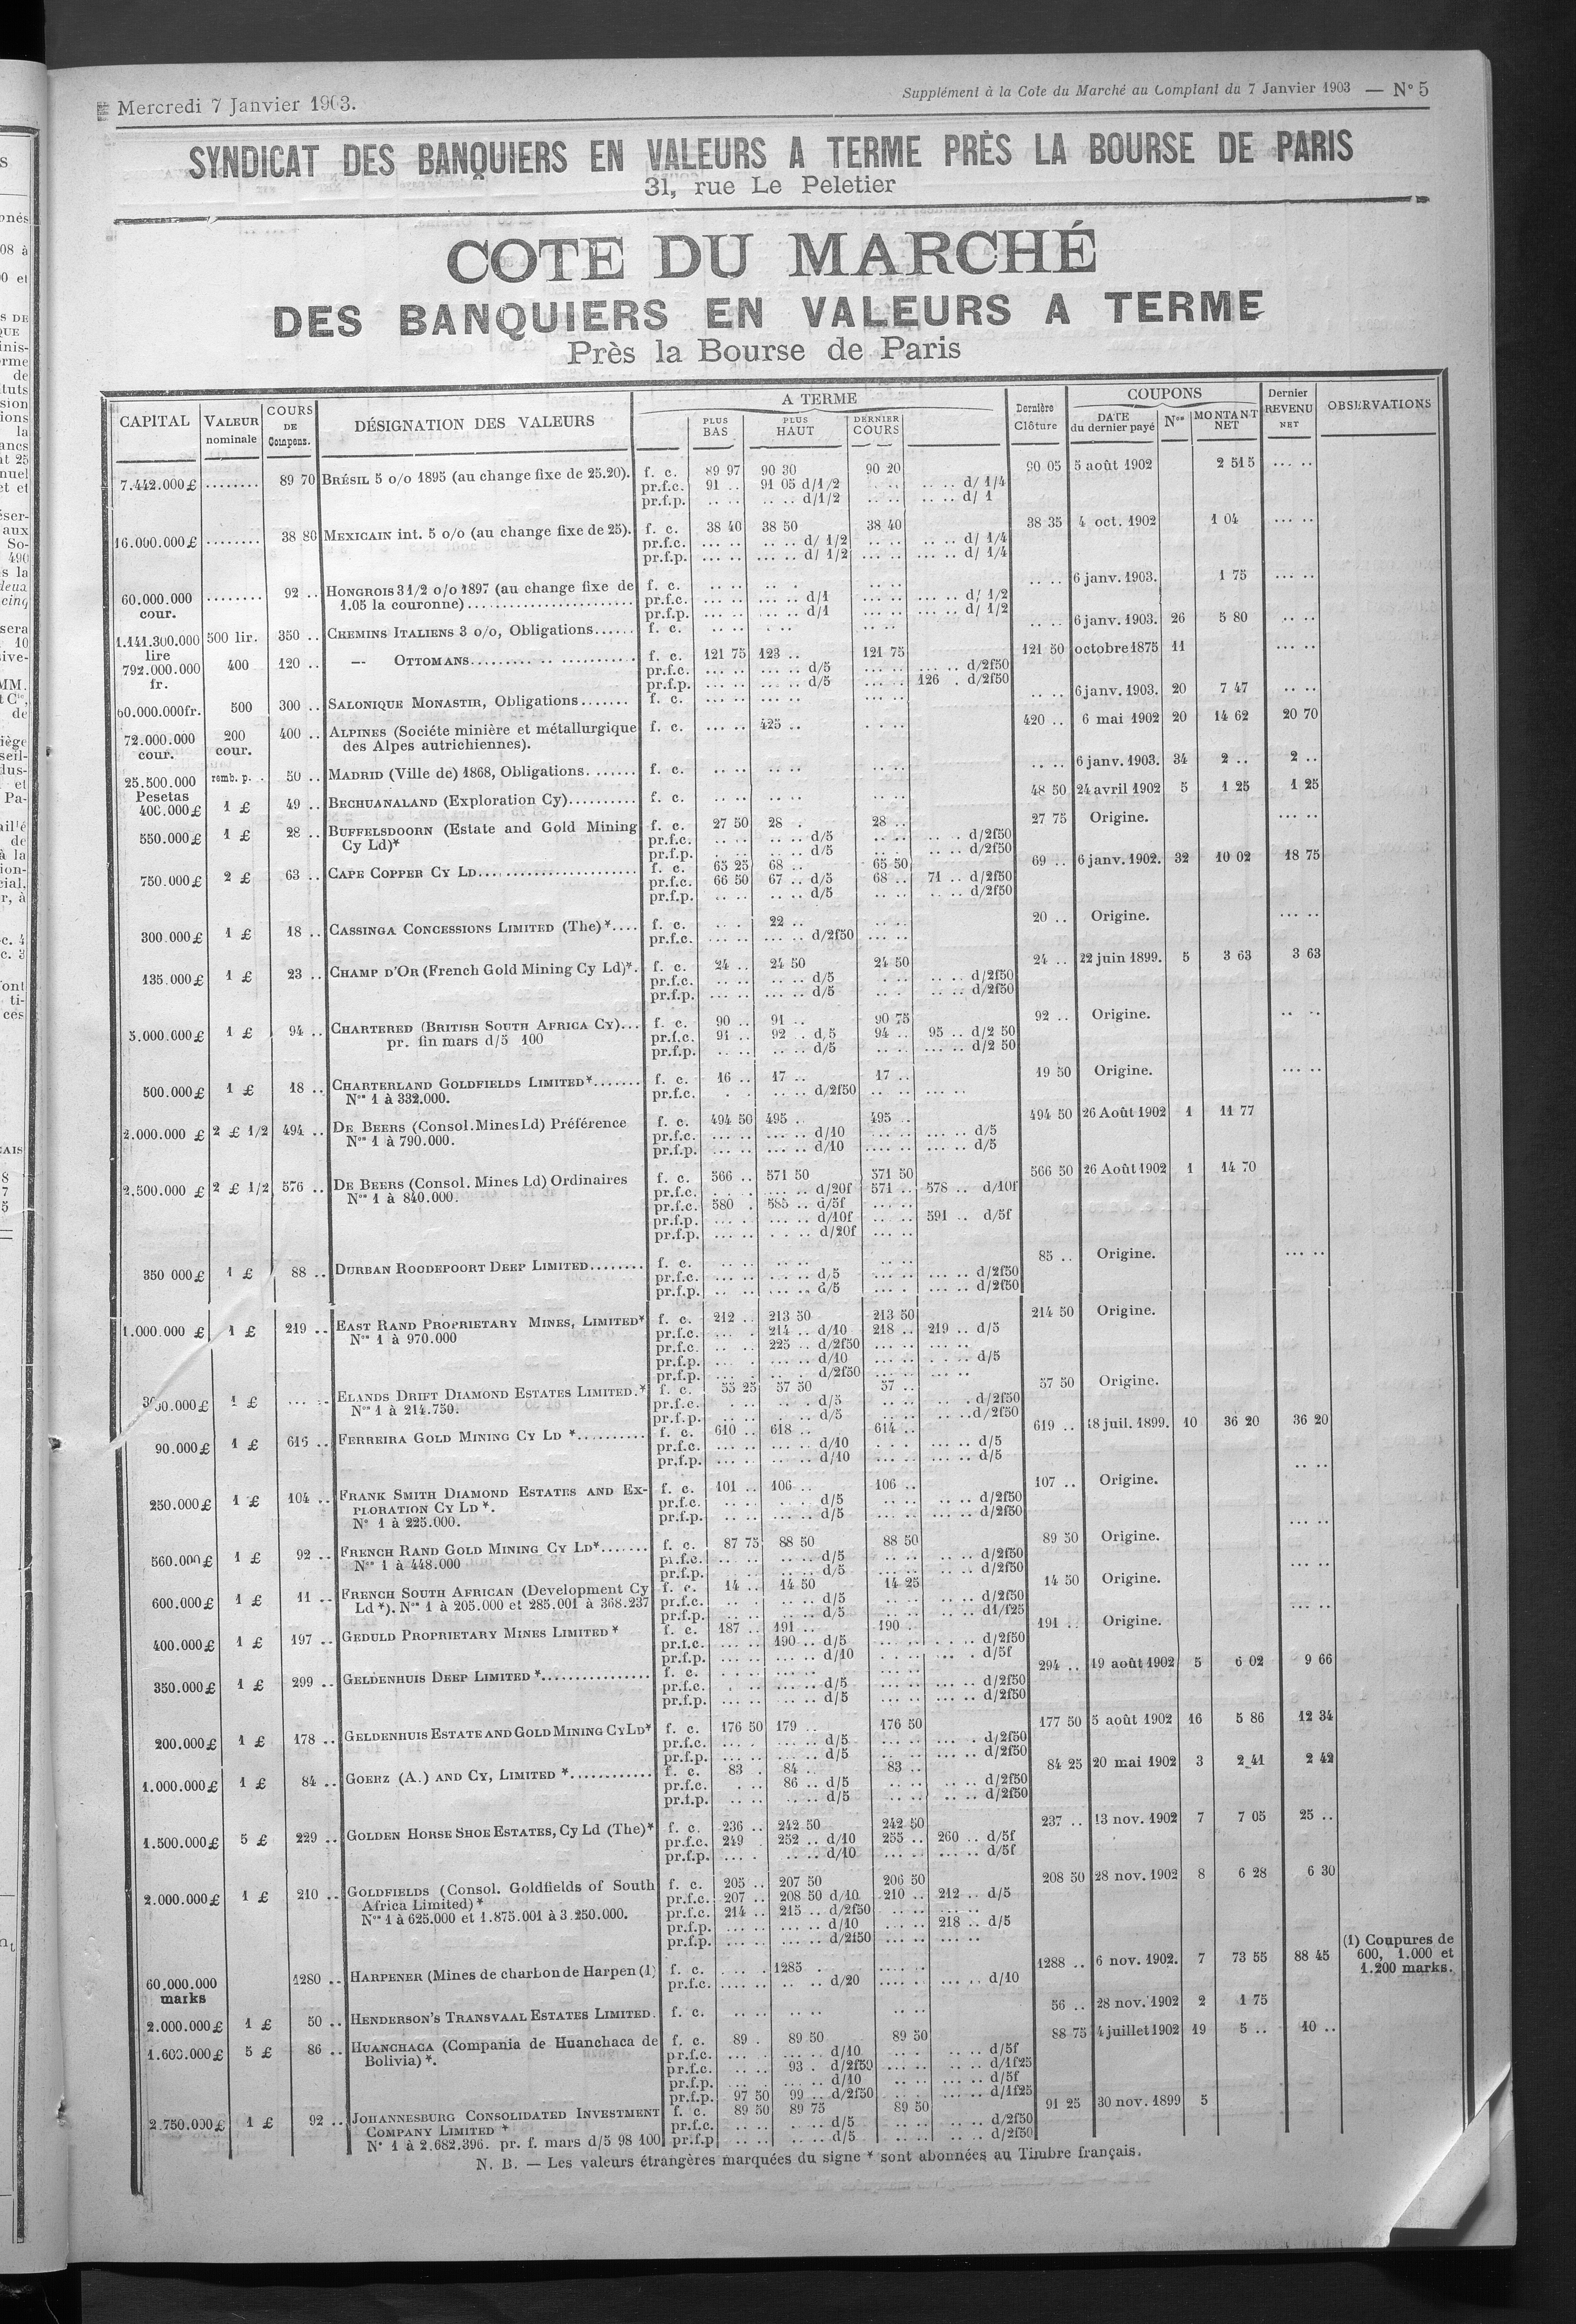 Mercredi 7 Janvier 1903.
Supplément à la Cote du Marché au Comptant du 7 Janvier 1903 — N° 5
SYNDICAT DES BANQUIERS EN VALEURS A TERME PRÈS LA BOURSE DE PARIS
31, rue Le Peletier
COTE DU MARCHÉ
DES BANQUIERS EN VALEURS A TERME
Près la Bourse de Paris
CAPITAL VALEUR nominale COURS DE Compens. DÉSIGNATION DES VALEURS A TERME PLUS BAS PLUS HAUT DERNIER COURS Dernière Clôture COUPONS DATE du dernier payé Nos MONTANT NET Dernier REVENU NET OBSERVATIONS
7.442.000£ ........ 89 70 BRÉSIL 5 o/o 1895 (au change fixe de 25.20). f. c. 89 97 90 30 90 20 90 05 5 août 1902 2 515 ... ..
pr.f.c. 91 .. 91 05 d/1/2 .. .. .. .. d/ 1/4
pr.f.p. .. .. .. .. d/1/2 .. .. .. .. d/ 1
16.000.000£ ........ 38 80 MEXICAIN int. 5 o/o (au change fixe de 25). f. c. 38 40 38 50 38 40 38 35 4 oct. 1902 1 04 ... ..
pr.f.c. ... .. .. .. d/ 1/2 .. .. .. .. d/ 1/4
pr.f.p. ... .. .. .. d/ 1/2 .. .. .. .. d/ 1/4
60.000.000 cour. ........ 92 .. HONGROIS 3 1/2 o/o 1897 (au change fixe de f. c. .. .. .. .. .. .. .. .. 6 janv. 1903. 1 75 ... ..
1.05 la couronne)........................ pr.f.c. ... .. ... .. d/1 ... .. ... .. d/ 1/2
pr.f.p. ... .. ... .. d/1 ... .. ... .. d/ 1/2
1.141.300.000 lire 500 lir. 350 .. CHEMINS ITALIENS 3 o/o, Obligations...... f. c. .. .. .. .. .. .. .. .. 6 janv. 1903. 26 5 80 .. ..
792.000.000 fr. 400 120 .. — OTTOMANS........................ f. c. 121 75 123 .. 121 75 121 50 octobre 1875 11 ... ..
pr.f.c. ... .. ... .. d/5 ... .. ... .. d/2f50
pr.f.p. ... .. ... .. d/5 ... .. 126 . d/2f50
60.000.000fr. 500 300 .. SALONIQUE MONASTIR, Obligations....... f. c. ... .. .. .. 6 janv. 1903. 20 7 47 .. ..
72.000.000 cour. 200 cour. 400 .. ALPINES (Sociéte minière et métallurgique f. c. ... .. 425 .. .. .. 420 .. 6 mai 1902 20 14 62 20 70
des Alpes autrichiennes).
25.500.000 Pesetas remb. p. . 50 .. MADRID (Ville de) 1868, Obligations. ...... f. c. .. .. .. .. .. .. .. .. 6 janv. 1903. 34 2 .. 2 ..
400.000£ 1 £ 49 .. BECHUANALAND (Exploration Cy).......... f. c. .. .. .. .. .. .. 48 50 24 avril 1902 5 1 25 1 25
550.000£ 1 £ 28 .. BUFFELSDOORN (Estate and Gold Mining f. c. 27 50 28 . 28 .. 27 75 Origine. ... ..
Cy Ld)* pr.f.c. .. .. .. .. d/5 .. .. .. .. d/2f50
pr.f.p. .. .. .. .. d/5 .. .. .. .. d/2f50
750.000£ 2 £ 63 .. CAPE COPPER CY LD....................... f. c. 65 25 68 .. 65 50 69 .. 6 janv. 1902. 32 10 02 18 75
pr.f.c. 66 50 67 .. d/5 68 .. 71 .. d/2f50
pr.f.p. .. .. .. .. d/5 .. .. .. .. d/2f50
300.000£ 1 £ 18 .. CASSINGA CONCESSIONS LIMITED (The)*.... f. c. .. . 22 .. .. .. 20 .. Origine. ... ..
pr.f.c. ... .. ... .. d/2f50 ... ..
135.000£ 1 £ 23 .. CHAMP D'OR (French Gold Mining Cy Ld)*. f. c. 24 .. 24 50 24 50 24 .. 22 juin 1899. 5 3 63 3 63
pr.f.c. .. .. ... .. d/5 . .. .. .. d/2f50
pr.f.p. ... .. ... .. d/5 .. . .. .. d/2f50
3.000.000£ 1 £ 94 .. CHARTERED (BRITISH SOUTH AFRICA CY)... f. c. 90 .. 91 .. 90 75 92 .. Origine. .. ..
pr. fin mars d/5 100 pr.f.c. 91 .. 92 . d,5 94 .. 95 .. d/2 50
pr.f.p. .. .. .. .. d/5 .. . ... .. d/2 50
500.000£ 1 £ 18 .. CHARTERLAND GOLDFIELDS LIMITED*....... f. c. 16 .. 17 .. 17 .. 19 50 Origine. ... ..
Nos 1 à 332.000. pr.f.c. . . .. .. d/2f50 ... ..
2.000.000 £ 2 £ 1/2 494 .. DE BEERS (Consol. Mines Ld) Préférence f. c. 494 50 495 . 495 .. 494 50 26 Août 1902 1 11 77
Nos 1 à 790.000. pr.f.c. ... .. ... .. d/10 ... .. ... .. d/5
pr.f.p. ... .. ... .. d/10 .... .. ... .. d/5
2.500.000 £ 2 £ 1/2 576 .. DE BEERS (Consol. Mines Ld) Ordinaires f. c. 566 .. 571 50 571 50 566 50 26 Août 1902 1 14 70
Nos 1 à 840.000. pr.f.c. . . . ... .. d/20f 571 .. 578 .. d/10f
pr.f.c. 580 . 585 .. d/5f ... ..
pr.f.p. ... .. ... .. d/10f .. .. 591 .. d/5f
pr.f.p. ... .. . . .. d/20f ... ..
350 000£ 1 £ 88 .. DURBAN ROODEPOORT DEEP LIMITED........ f. c. .. .. .. .. .. .. 85 .. Origine. ... ..
pr.f.c. ... .. ... .. d/5 ... .. ... .. d/2f50
pr.f.p. .. .. ... .. d/5 ... . ... .. d/2f50
1.000.000 £ 1 £ 219 .. EAST RAND PROPRIETARY MINES, LIMITED* f. c. 212 .. 213 50 213 50 214 50 Origine.
Nos 1 à 970.000 pr.f.c. ... . 214 .. d/10 218 .. 219 .. d/5
pr.f.c. .. . 225 .. d/2f50 ... .. ... ..
pr.f.p. ... . ... .. d/10 ... .. . . .. d/5
pr.f.p. ... . ... .. d/2f50 ... .. ... ..
1 £ ... .. ELANDS DRIFT DIAMOND ESTATES LIMITED.* f. c. 55 25 57 50 57 .. 57 50 Origine.
Nos 1 à 214.750. pr.f.c. .. .. . .. d/5 .. .. .. . d/2f50
pr.f.p. .. .. .. .. d/5 .. .. .. .. d/2f50
90.000£ 1 £ 615 .. FERREIRA GOLD MINING CY LD *.......... f. c. 610 .. 618 .. 614 .. 619 .. 18 juil. 1899. 10 36 20 36 20
pr.f.c. ... .. ... .. d/10 . . . ... .. d/5
pr.f.p. ... .. ... .. d/10 ... .. ... .. d/5
250.000£ 1 £ 104 .. FRANK SMITH DIAMOND ESTATES AND EX- f. c. 101 .. 106 .. 106 .. 107 .. Origine. .. ..
PLORATION CY LD *. pr.f.c. .. .. . .. d/5 .. .. .. .. d/2f50
N° 1 à 225.000. pr.f.p. ... .. ... .. d/5 .. .. .. .. d/2f50
560.000£ 1 £ 92 .. FRENCH RAND GOLD MINING CY LD*....... f. c. 87 75 88 50 88 50 89 50 Origine. ... ..
Nos 1 à 448.000 pr.f.c. .. .. .. .. d/5 .. .. .. .. d/2f50
pr.f.p. .. .. .. .. d/5 .. .. .. .. d/2f50
600.000£ 1 £ 11 .. FRENCH SOUTH AFRICAN (Development Cy f. c. 14 .. 14 50 14 25 14 50 Origine. ... ..
Ld *). Nos 1 à 205.000 et 285.001 à 368.237 pr.f.c. .. . .. .. d/5 .. .. .. .. d/2f50
pr.f.p. .. .. .. .. d/5 .. .. .. .. d1/f25
400.000£ 1 £ 197 .. GEDULD PROPRIETARY MINES LIMITED * f. c. 187 .. 191 .. 190 .. 191 .. Origine. ... ..
pr.f.c. ... .. 190 .. d/5 ... .. . . .. d/2f50
pr.f.p. ... .. ... .. d/10 . . .. .. . d/5f
350.000£ 1 £ 299 .. GELDENHUIS DEEP LIMITED *................ f. c. . . .. ... .. ... .. 294 .. 19 août 1902 5 6 02 9 66
pr.f.c. . .. ... .. d/5 ... .. ... .. d/2f50
pr.f.p. ... .. ... .. d/5 ... .. ... .. d/2f50
200.000£ 1 £ 178 .. GELDENHUIS ESTATE AND GOLD MINING CY LD* f. c. 176 50 179 .. 176 50 177 50 5 août 1902 16 5 86 12 34
pr.f.c. ... . ... .. d/5 ... .. . .. d/2f50
pr.f.p. ... .. ... .. d/5 .. .. ... .. d/2f50
1.000.000£ 1 £ 84 .. GOERZ (A.) AND CY, LIMITED *............ f. c. 83 . 84 .. 83 .. 84 25 20 mai 1902 3 2 41 2 42
pr.f.c. . .. 86 .. d/5 .. .. .. .. d/2f50
pr.f.p. .. .. .. .. d/5 .. .. .. .. d/2f50
1.500.000£ 5 £ 229 .. GOLDEN HORSE SHOE ESTATES, Cy Ld (The)* f. c. 236 .. 242 50 242 50 237 .. 13 nov. 1902 7 7 05 25 ..
pr.f.c. 249 . 252 .. d/10 255 .. 260 .. d/5f
pr.f.p. ... . .. .. d/10 ... .. ... .. d/5f
2.000.000£ 1 £ 210 .. GOLDFIELDS (Consol. Goldfields of South f. c. 205 .. 207 50 206 50 208 50 28 nov. 1902 8 6 28 6 30
Africa Limited) * pr.f.c. 207 .. 208 50 d/10 210 .. 212 .. d/5
Nos 1 à 625.000 et 1.875.001 à 3.250.000. pr.f.c. 214 .. 215 .. d/2f50 .. .. ... ..
pr.f.p. ... .. ... .. d/10 ... .. 218 .. d/5
pr.f.p. ... .. ... .. d/2f50 ... .. ... ..
60.000.000 marks 1280 .. HARPENER (Mines de charbon de Harpen (1) f. c. .. . . 1285 . ... .. 1288 .. 6 nov. 1902. 7 73 55 88 45 (1) Coupures de 600, 1.000 et 1.200 marks.
pr.f.c. .... .. .. .. d/20 .... .. ... .. d/10
2.000.000£ 1 £ 50 .. HENDERSON'S TRANSVAAL ESTATES LIMITED. f. c. .. .. .. .. .. .. 56 .. 28 nov. 1902 2 1 75
1.600.000£ 5 £ 86 .. HUANCHACA (Compania de Huanchaca de f. c. 89 . 89 50 89 50 88 75 4 juillet 1902 19 5 .. 10 ..
Bolivia) *. pr.f.c. ... . ... .. d/10 .. . ... .. d/5f
pr.f.c. .. .. 93 . d/2f50 .. .. .. .. d/1f25
pr.f.p. ... . .. .. d/10 .. .. ... .. d/5f
pr.f.p. 97 50 99 .. d/2f50 .. . ... .. d/1f25
2.750.000£ 1 £ 92 .. JOHANNESBURG CONSOLIDATED INVESTMENT f. c. 89 50 89 75 89 50 91 25 30 nov. 1899 5
COMPANY LIMITED * pr.f.c. .. .. .. .. d/5 .. .. .. .. d/2f50
N° 1 à 2.682.396. pr. f. mars d/5 98 100 pr.f.p .. .. .. .. d/5 .. .. .. .. d/2f50
N. B. — Les valeurs étrangères marquées du signe * sont abonnées au Timbre français.